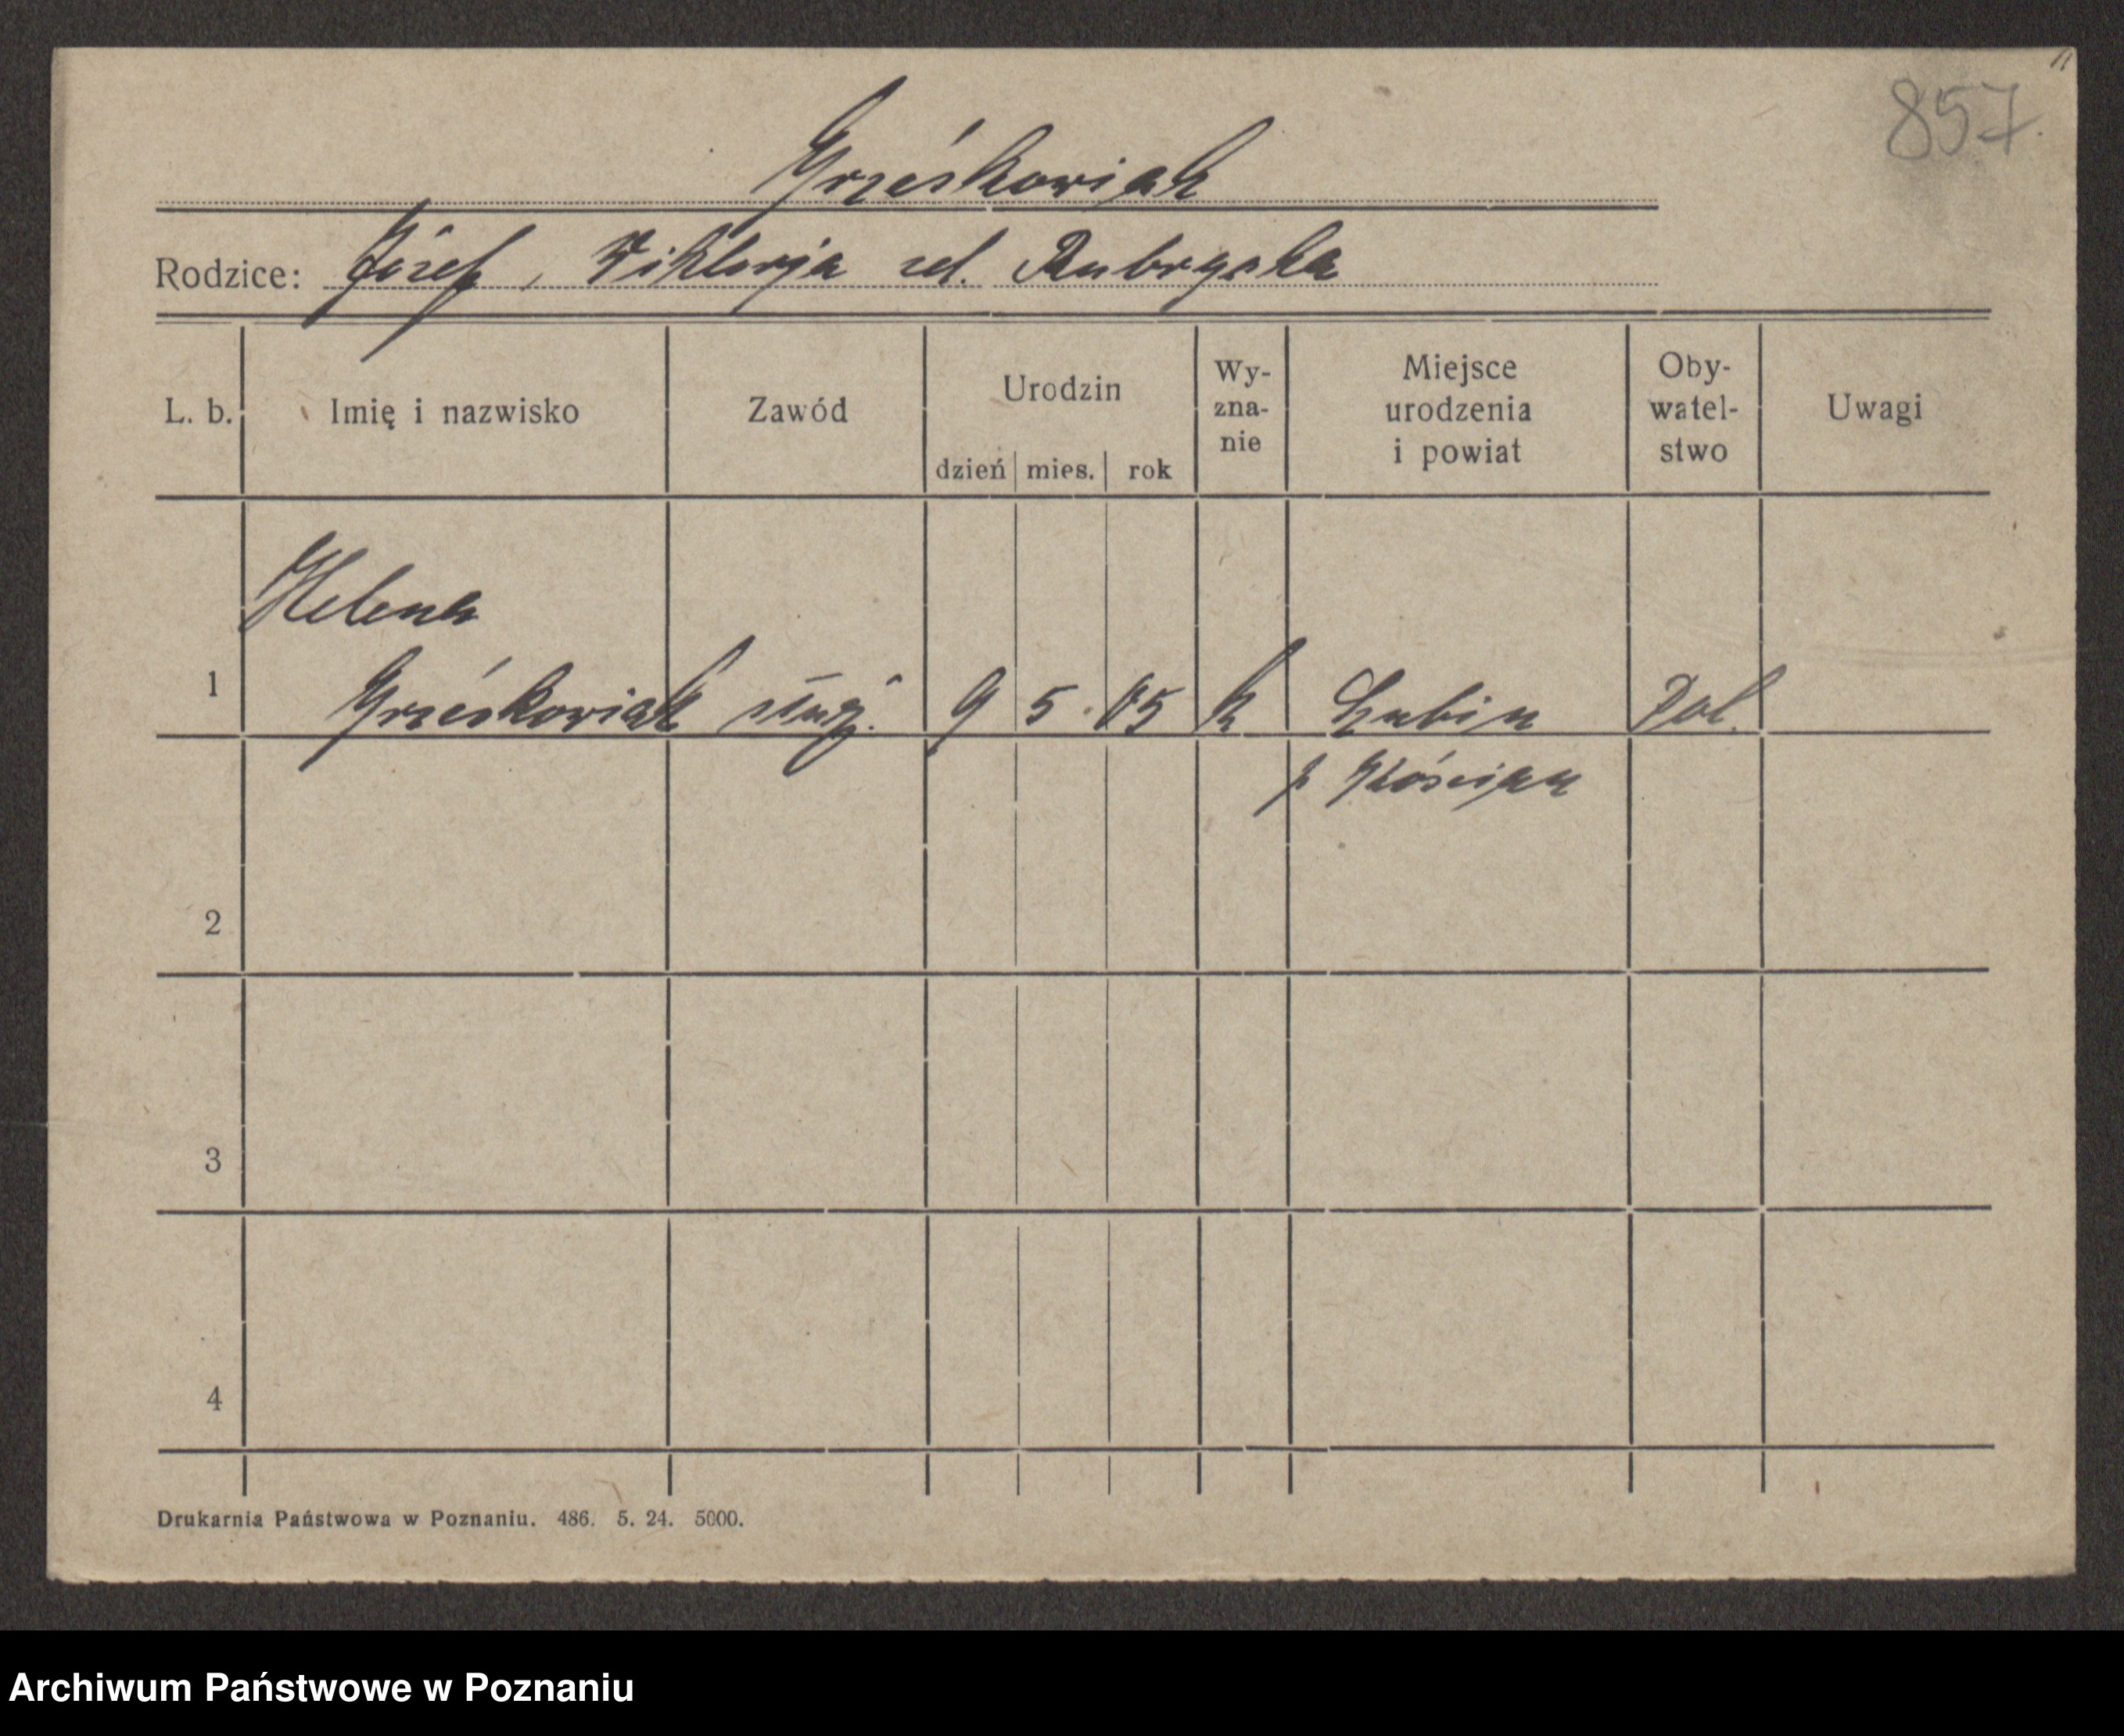 857.
Grześkowiak
Rodzice: Józef, Wiktorja
L. b. Imię i nazwisko Zawód Urodzin dzień mies. rok Wy-zna-nie Miejsce urodzenia i powiat Oby-watel-stwo Uwagi
Helena
1 Grześkowiak służ. 9 5. 05 k Lubin Pol.
p Kościan
2
3
4
Drukarnia Państwowa w Poznaniu. 486. 5. 24. 5000.
Archiwum Państwowe w Poznaniu